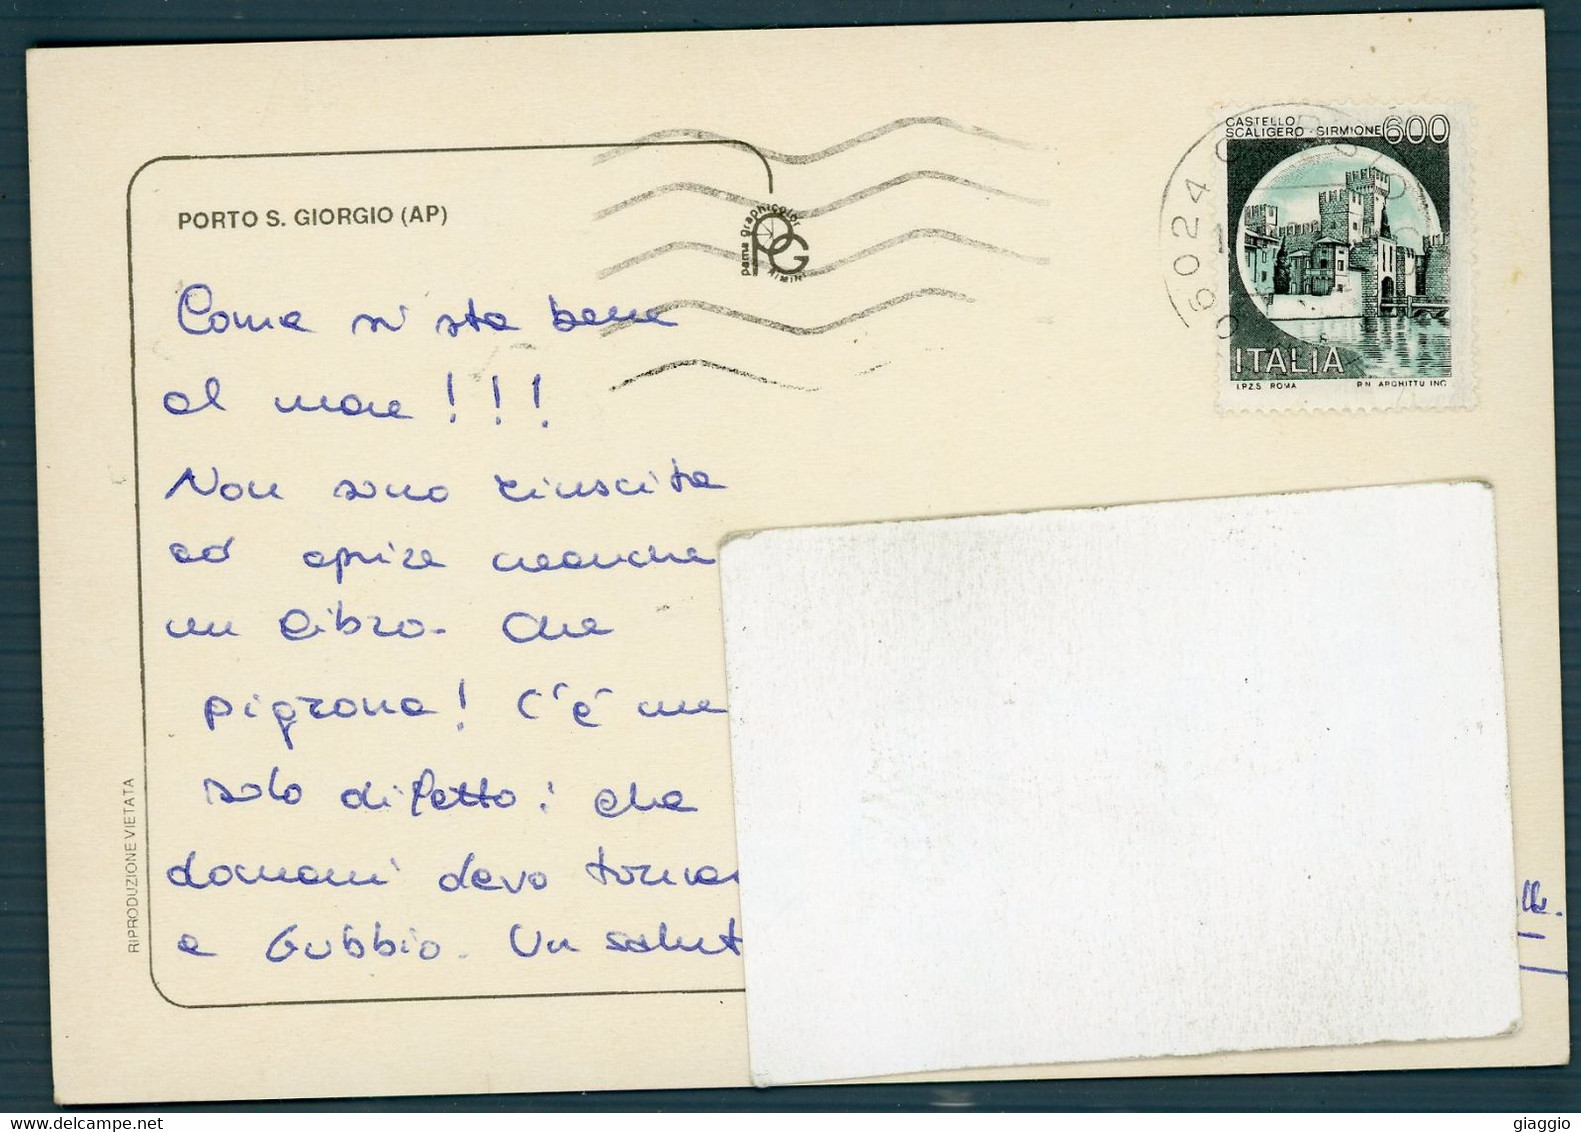 PORTO S. GIORGIO (AP)
Come si sta bene
al mare!!!
Non sono riuscita
ad aprire neanche
un libro. Che
pigrona! C'è un
solo difetto: che
domani devo tornar
a Gubbio. Un salut
lle.
RIPRODUZIONE VIETATA
pama graphicolor
PG
RIMINI
CASTELLO
SCALIGERO - SIRMIONE 600
ITALIA
I.P.Z.S. ROMA P.N. ARGHITTU INC.
06024
giaggio